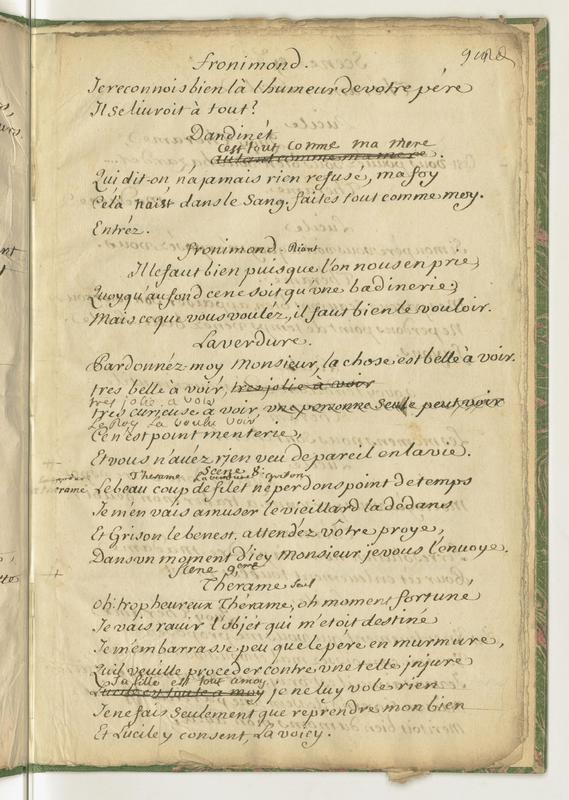 fronimond.
Je reconnois bien là l'humeur de votre pére
Il se livroit à tout?
Dandinét
c'est tout comme ma mere
autant comme ma mere.
Qui dit-on, n'a jamais rien refusé, ma foy
Céla naist dans le Sang. faites tout comme moy.
Entréz.
fronimond. Riant
Il le faut bien puis que l'on nous en prie,
Quoy qu'au fond ce ne soit qu'une badinerie;
Mais ce que vous vouléz, il faut bien le vouloir.
Laverdure.
Pardonnéz moy Monsieur, la chose est belle à voir.
tres belle à voir, tres jolie à voir
tres jolie à voir
tres curieuse à voir, une personne Seule peut voir
Le Roy la voulu voir
Ce n'est point menterie,
Et vous n'auéz rien veu de pareil en la vie.
Scene 8.
Therame Laverdure grison
rame
Le beau coup de filet ne perdons point de temps
Je m'en vais amuser le vieillard la dedans
Et Grison le benest. attendéz vôtre proye,
Dans un moment d'icy Monsieur je vous l'envoye.
Scene 9.eme
Thérame Seul
Oh! trop heureux Thérame, oh moment fortuné
Je vais ravir l'objet qui m'étoit destiné
Je m'embarrasse peu que le pére en murmure,
Qu'il veuille procéder contre une telle injure
Sa fille est tout a moy
Lucile est toute a moy je ne luy vole rien
Je ne fais Seulement que reprendre mon bien
Et Lucile y consent, La voicy.